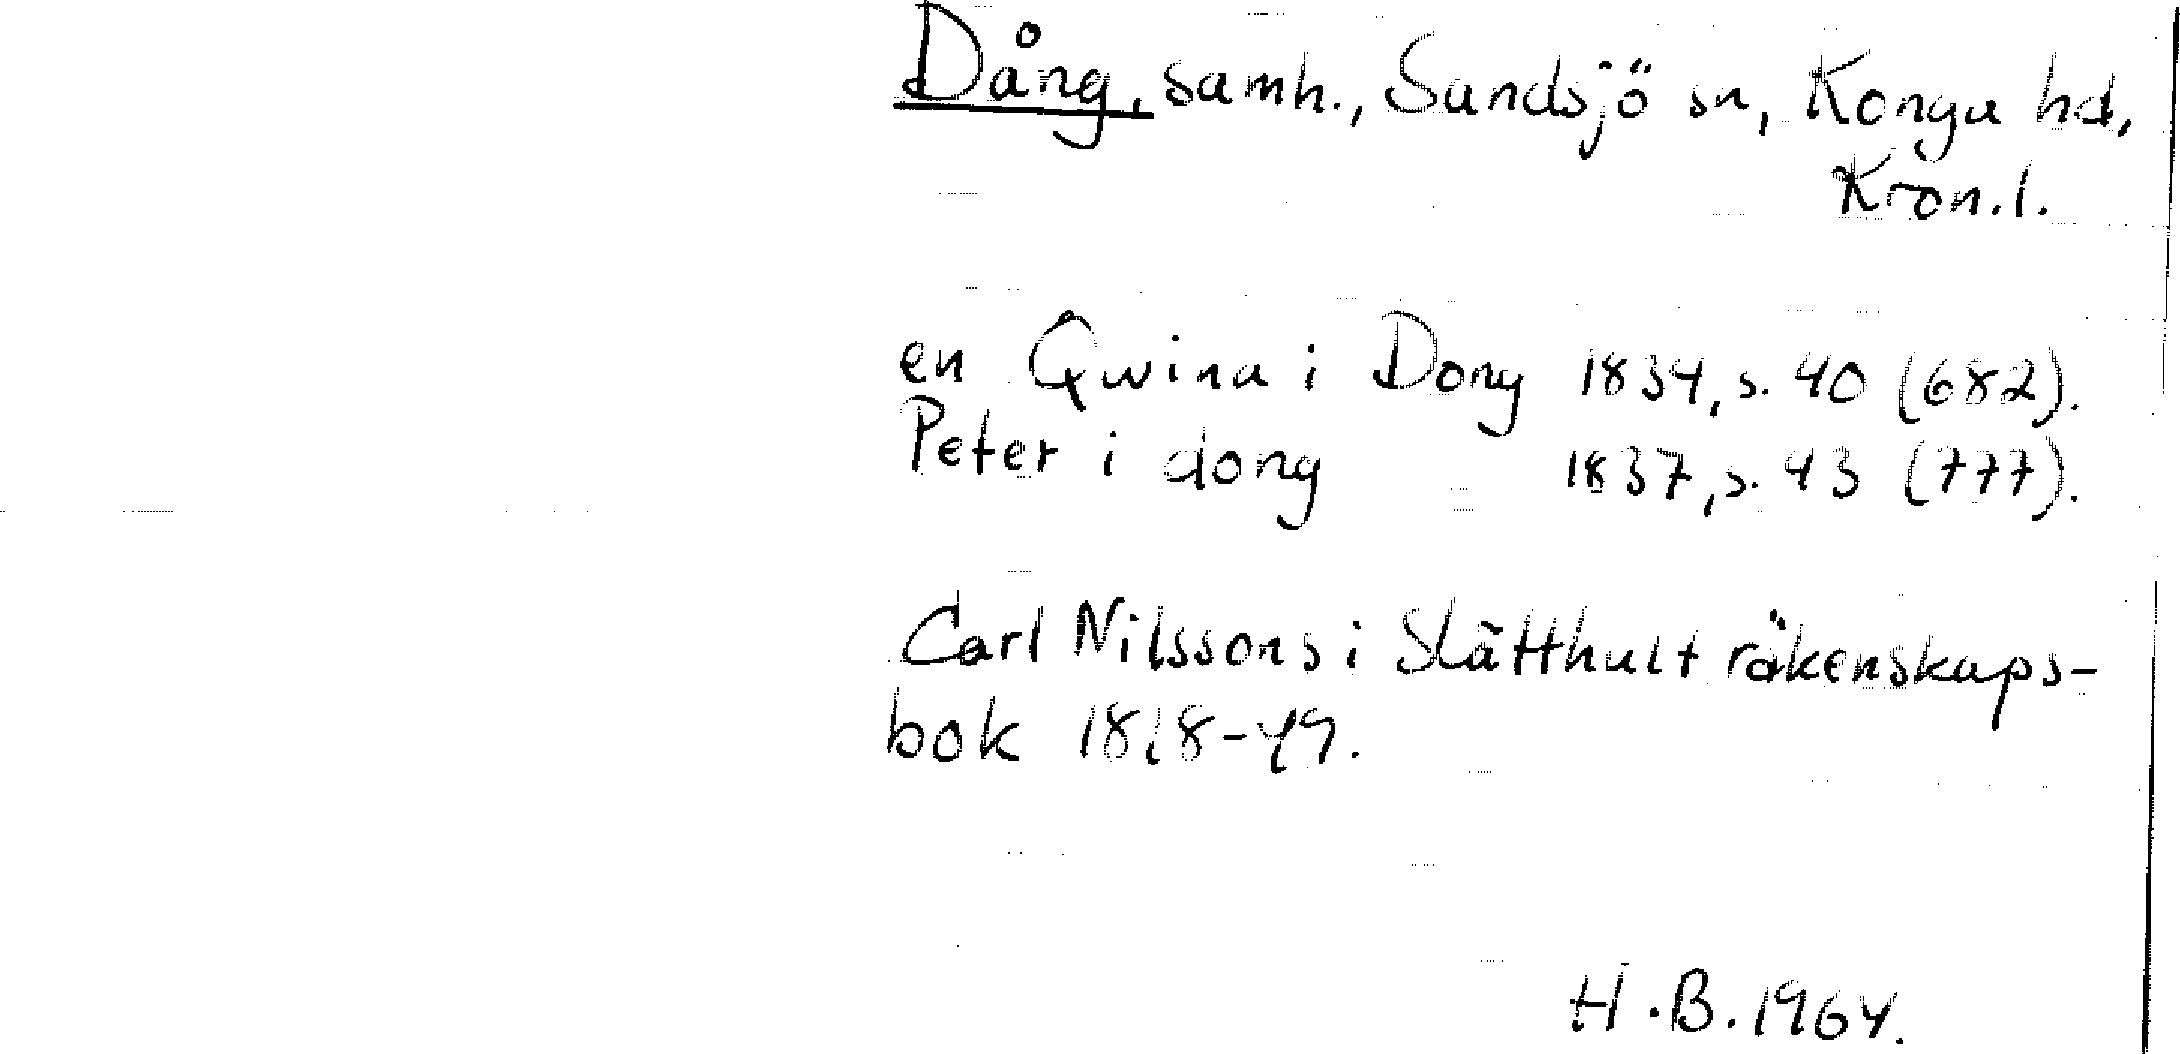 Dång, samh., Sandsjö sn, Konga hd,
Kron.l.
en Qwina i Dong 1834, s. 40 (682).
Peter i dong 1837, s. 43 (777).
Carl Nilssons i Slätthult räkenskaps-
bok 1818-49.
H.B. 1964.